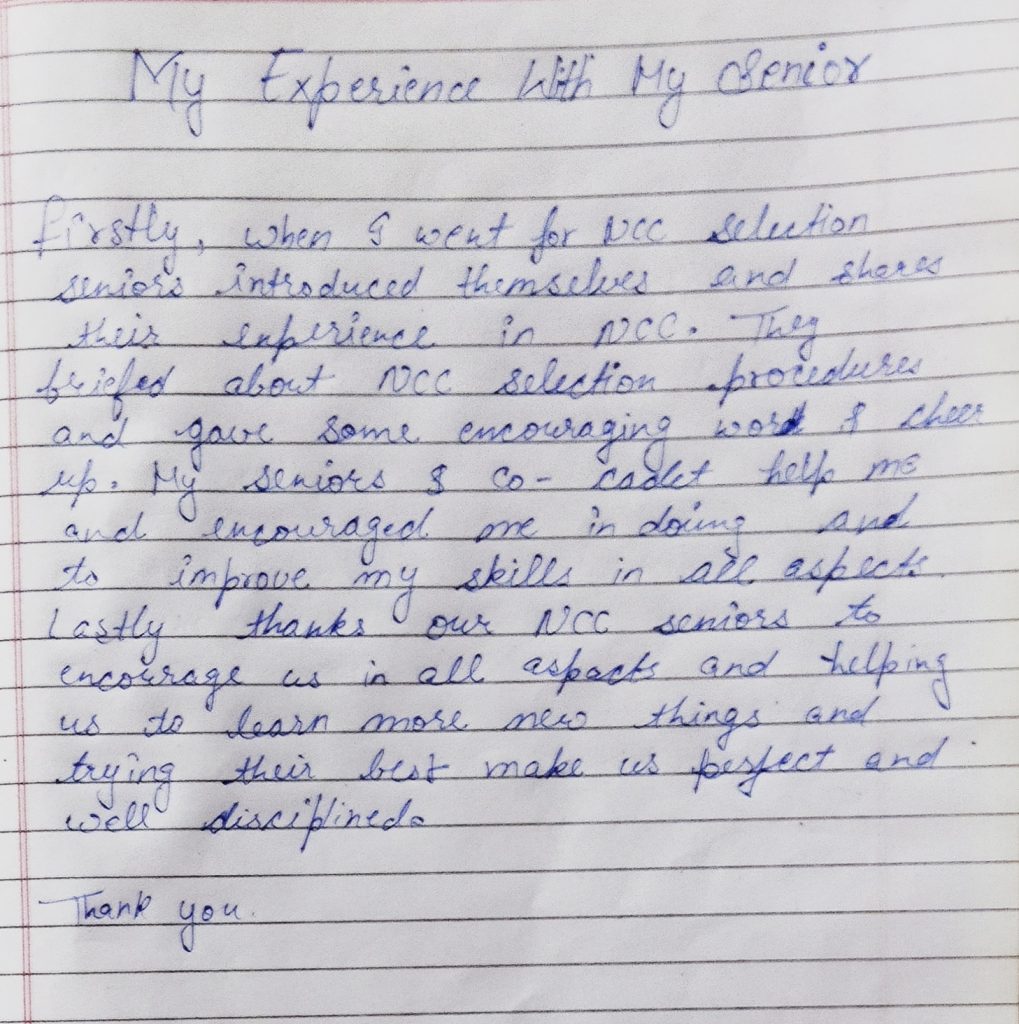 My Experience With My Senior
Firstly, when I went for NCC selection
seniors introduced themselves and shares
their experience in NCC. They
briefed about NCC selection procedures
and gave some encouraging word & cheer
up. My seniors & co- cadet help me
and encouraged me in doing and
to improve my skills in all aspects.
Lastly thanks our NCC seniors to
encourage us in all aspacts and helping
us to learn more new things and
trying their best make us perfect and
well disciplined.
Thank you.